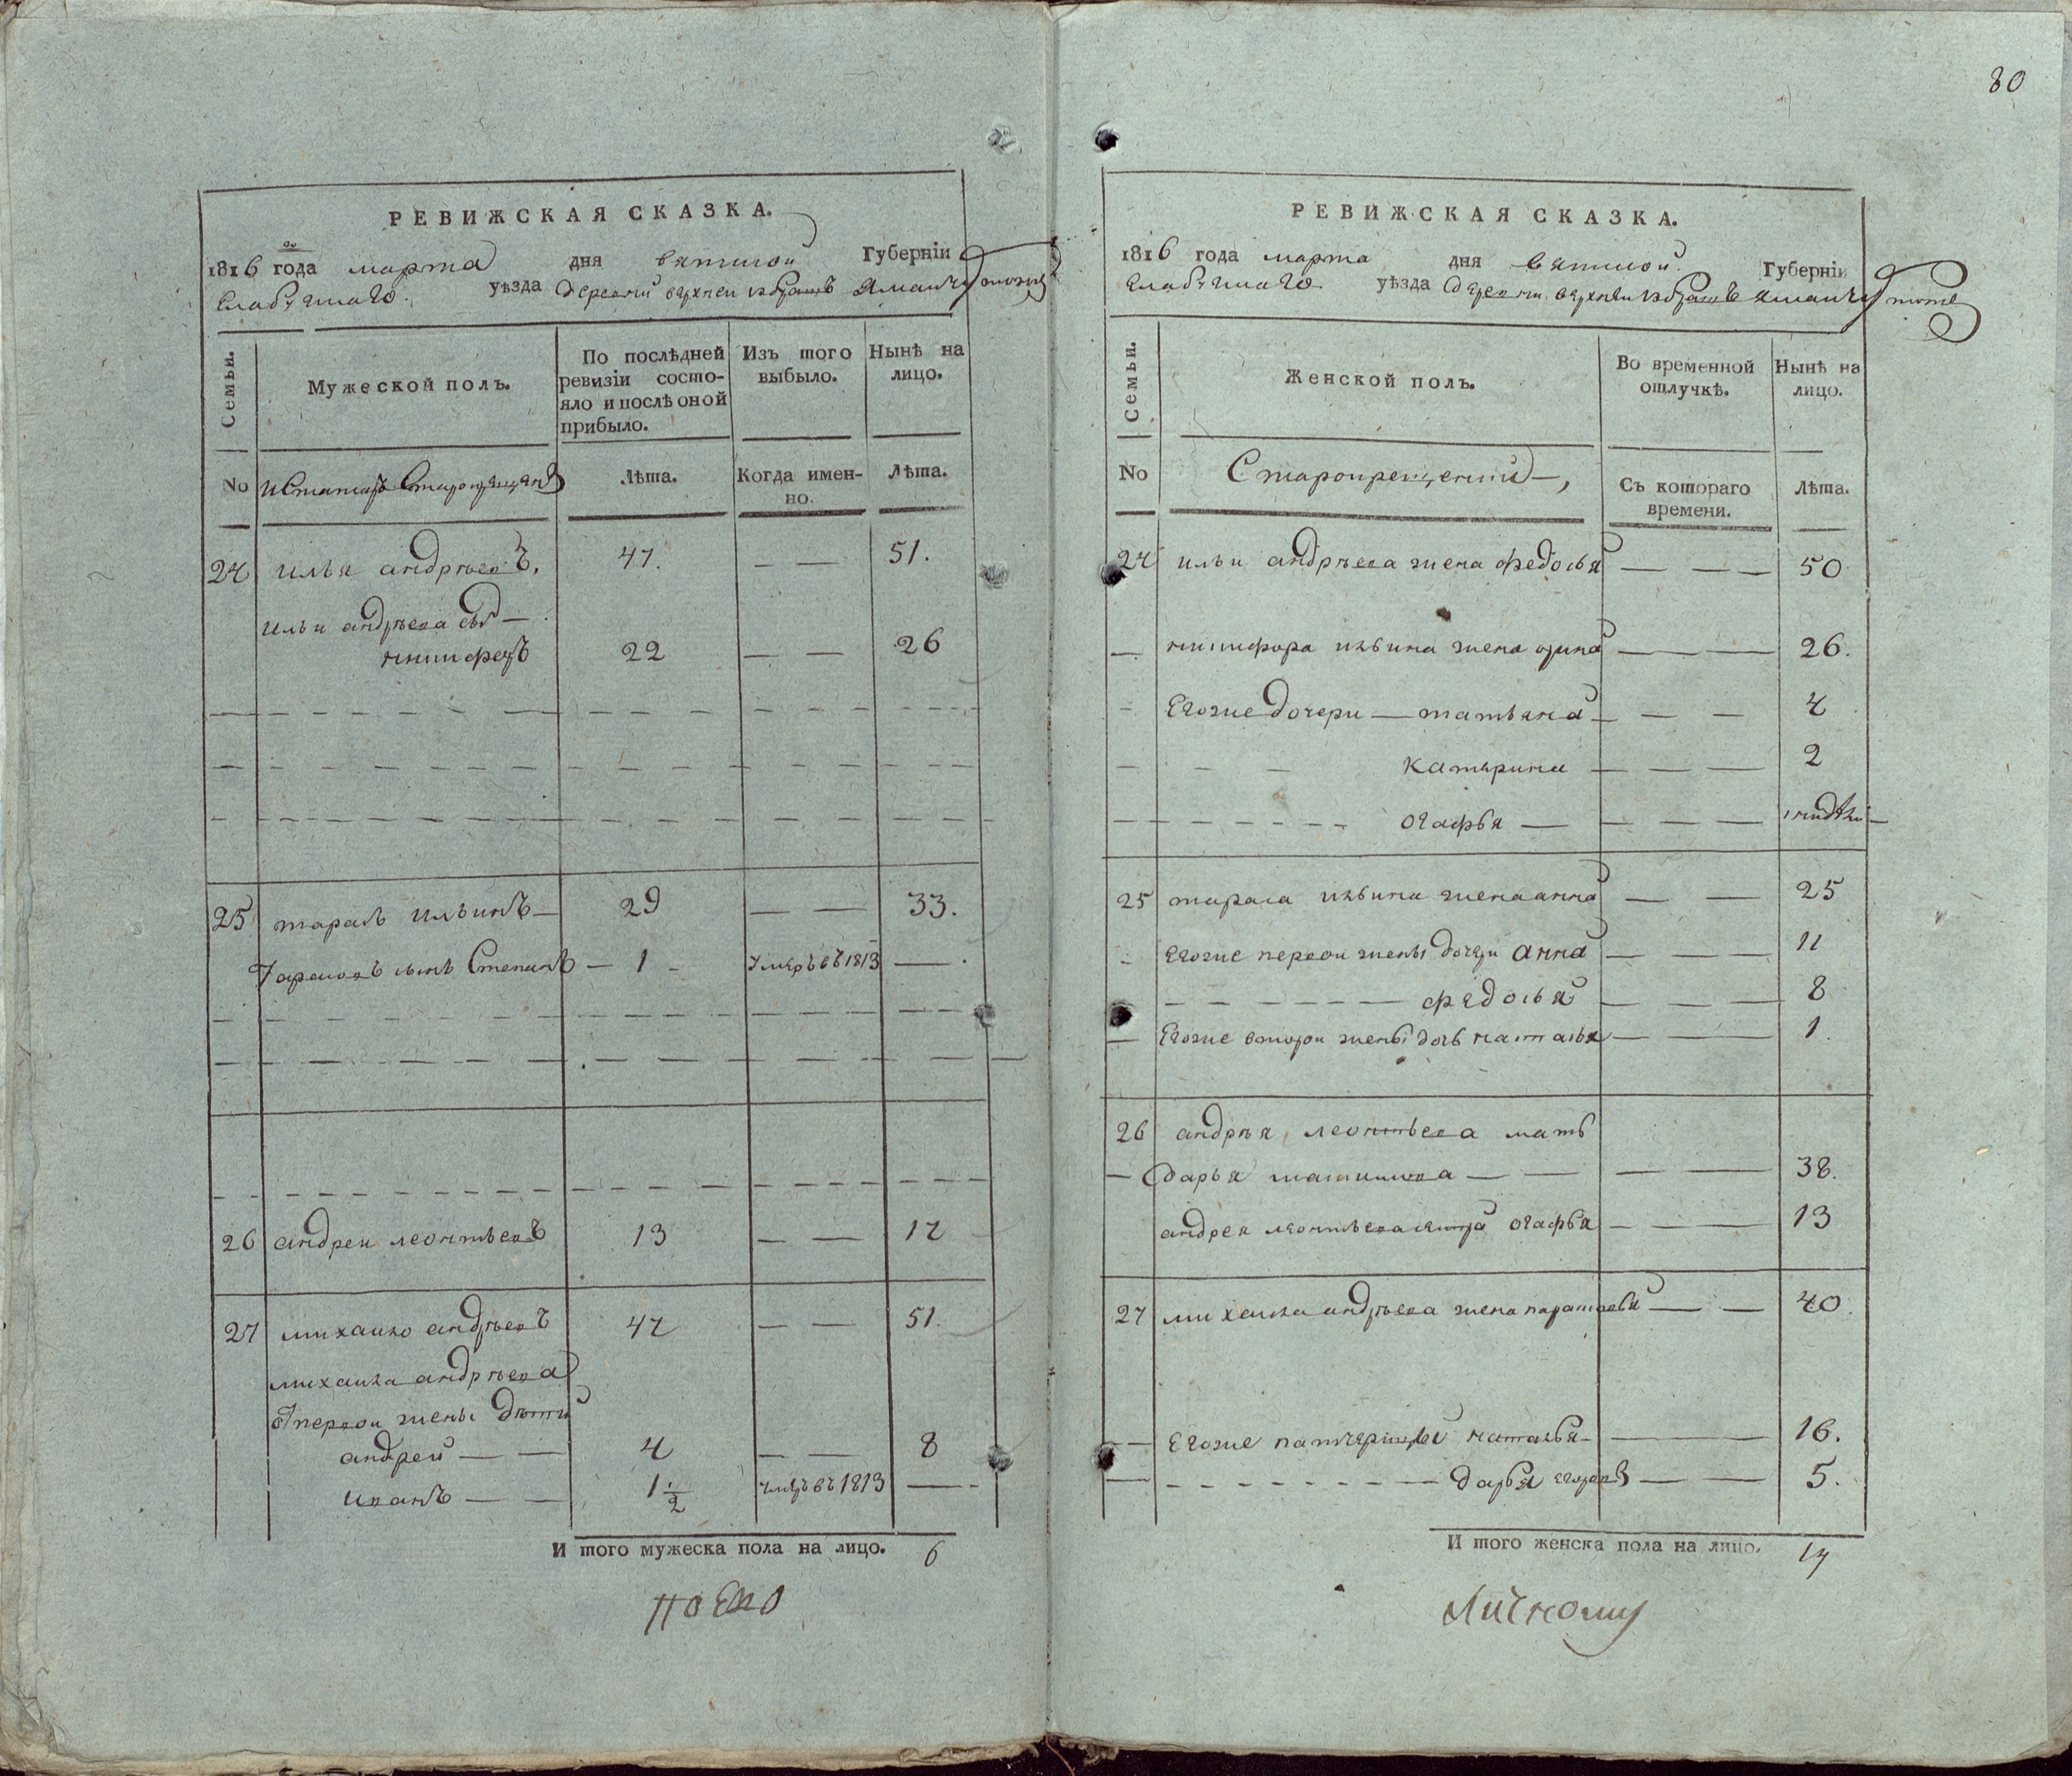 РЕВИЖСКАЯ СКАЗКА.
1816 года марта дня вятской Губерніи
Елабужскаго уѣзда деревни верхней
Семьи.
Мужеской полъ.
По послѣдней ревизіи состо-
яло и послѣ оной прибыло.
Изъ того выбыло.
Нынѣ на лицо.
No
Лѣта.
Когда имен-
но.
Лѣта.
24 илья андрѣевъ. 47. — — 51.
ильи андрѣева сынъ —
никифоръ 22 — — 26
25 тарасъ ильинъ — 29 — — 33.
Тарасовъ сынъ Степанъ — 1 — умеръ въ 1813 —
26 андреи леонтьевъ 13 — — 17
27 михаило андрѣевъ 47 — — 51.
михаила андрѣева
первои жены дѣти
андрей — — 4 — — 8
иванъ — — 1 1/2 умеръ въ 1813 —
И того мужеска пола на лицо. 6
80
РЕВИЖСКАЯ СКАЗКА.
1816 года марта дня вятской Губерніи
Елабужскаго уѣзда деревни верхней
Семьи.
Женской полъ.
Во временной отлучкѣ.
Нынѣ на лицо.
No
Съ котораго времени.
Лѣта.
24 ильи андрѣева жена федосья — — — 50
— никифора ильина жена — — 26.
- Егоже дочери — татьяна — — — 4
катерина — — — 2
огафья — — — —
25 тараса ильина жена анна — — 25
- Егоже первои жены дочери анна — — — 11
федосья — — — 8
— Егоже второи жены дочь наталья — — — 1.
26 андрѣя леонтьева мать
— дарья — — — — 38.
андрея леонтьева сестра огафья — — — 13
27 михаила андрѣева жена — — 40.
— Егоже падчерицы наталья — — — 16.
— дарья — — 5.
И того женска пола на лицо. 14